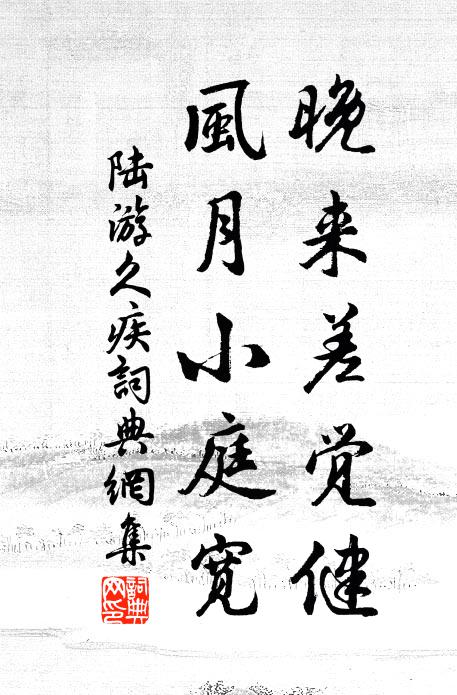 晚来差觉健
風月小庭宽
陆游久疾詞典網集
詞典网印